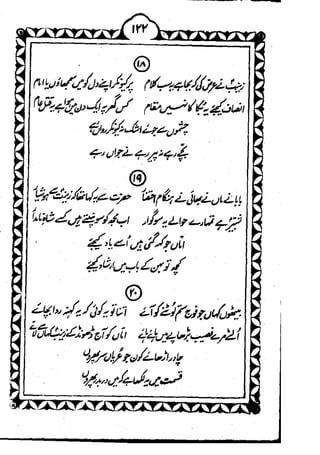 ۱۲۲
۱۸
زینبؑ نے عرض کی کہ بجا ہے یہ سب کلام پر کیونکر اپنے دل کو میں سمجھاؤں یا امام
انصاف کیجئے یہ بُکا کا نہیں مقام کس گھر پہ ایک دن میں ہوا ہے یہ قتل عام
چشموں سے جوئے اشک نہ کیونکر رواں رہے
بچے رہے نہ پیر رہے نے جواں رہے
۱۹
بابا نے ماں نے بھائی نے ہنگام حضرت سے کہا تھا کہ زینبؑ سے
شبیرؑ ہے تمہارے حوالے یہ سوگوار اب تجھ کو سونپتے ہیں اسے
اماں جو کہہ گئی ہیں اُسے یاد کیجئے
کچھ تو بہن کے باب میں ارشاد کیجئے
۲۰
بیٹھوں کہاں جو فوج ستم لوٹنے کو آئے اتنا تو ہو کوئی کہ یہ کہنہ ردا بچائے
اُلٹے مرے نصیب بڑھاپے میں ہائے ہائے اماں کو آج ڈھونڈ کے زینبؑ کہاں سے لائے
چادر اڑھائے کون جو عریاں سر پھروں
قسمت میں یہ لکھا ہے کہ میں در بدر پھروں